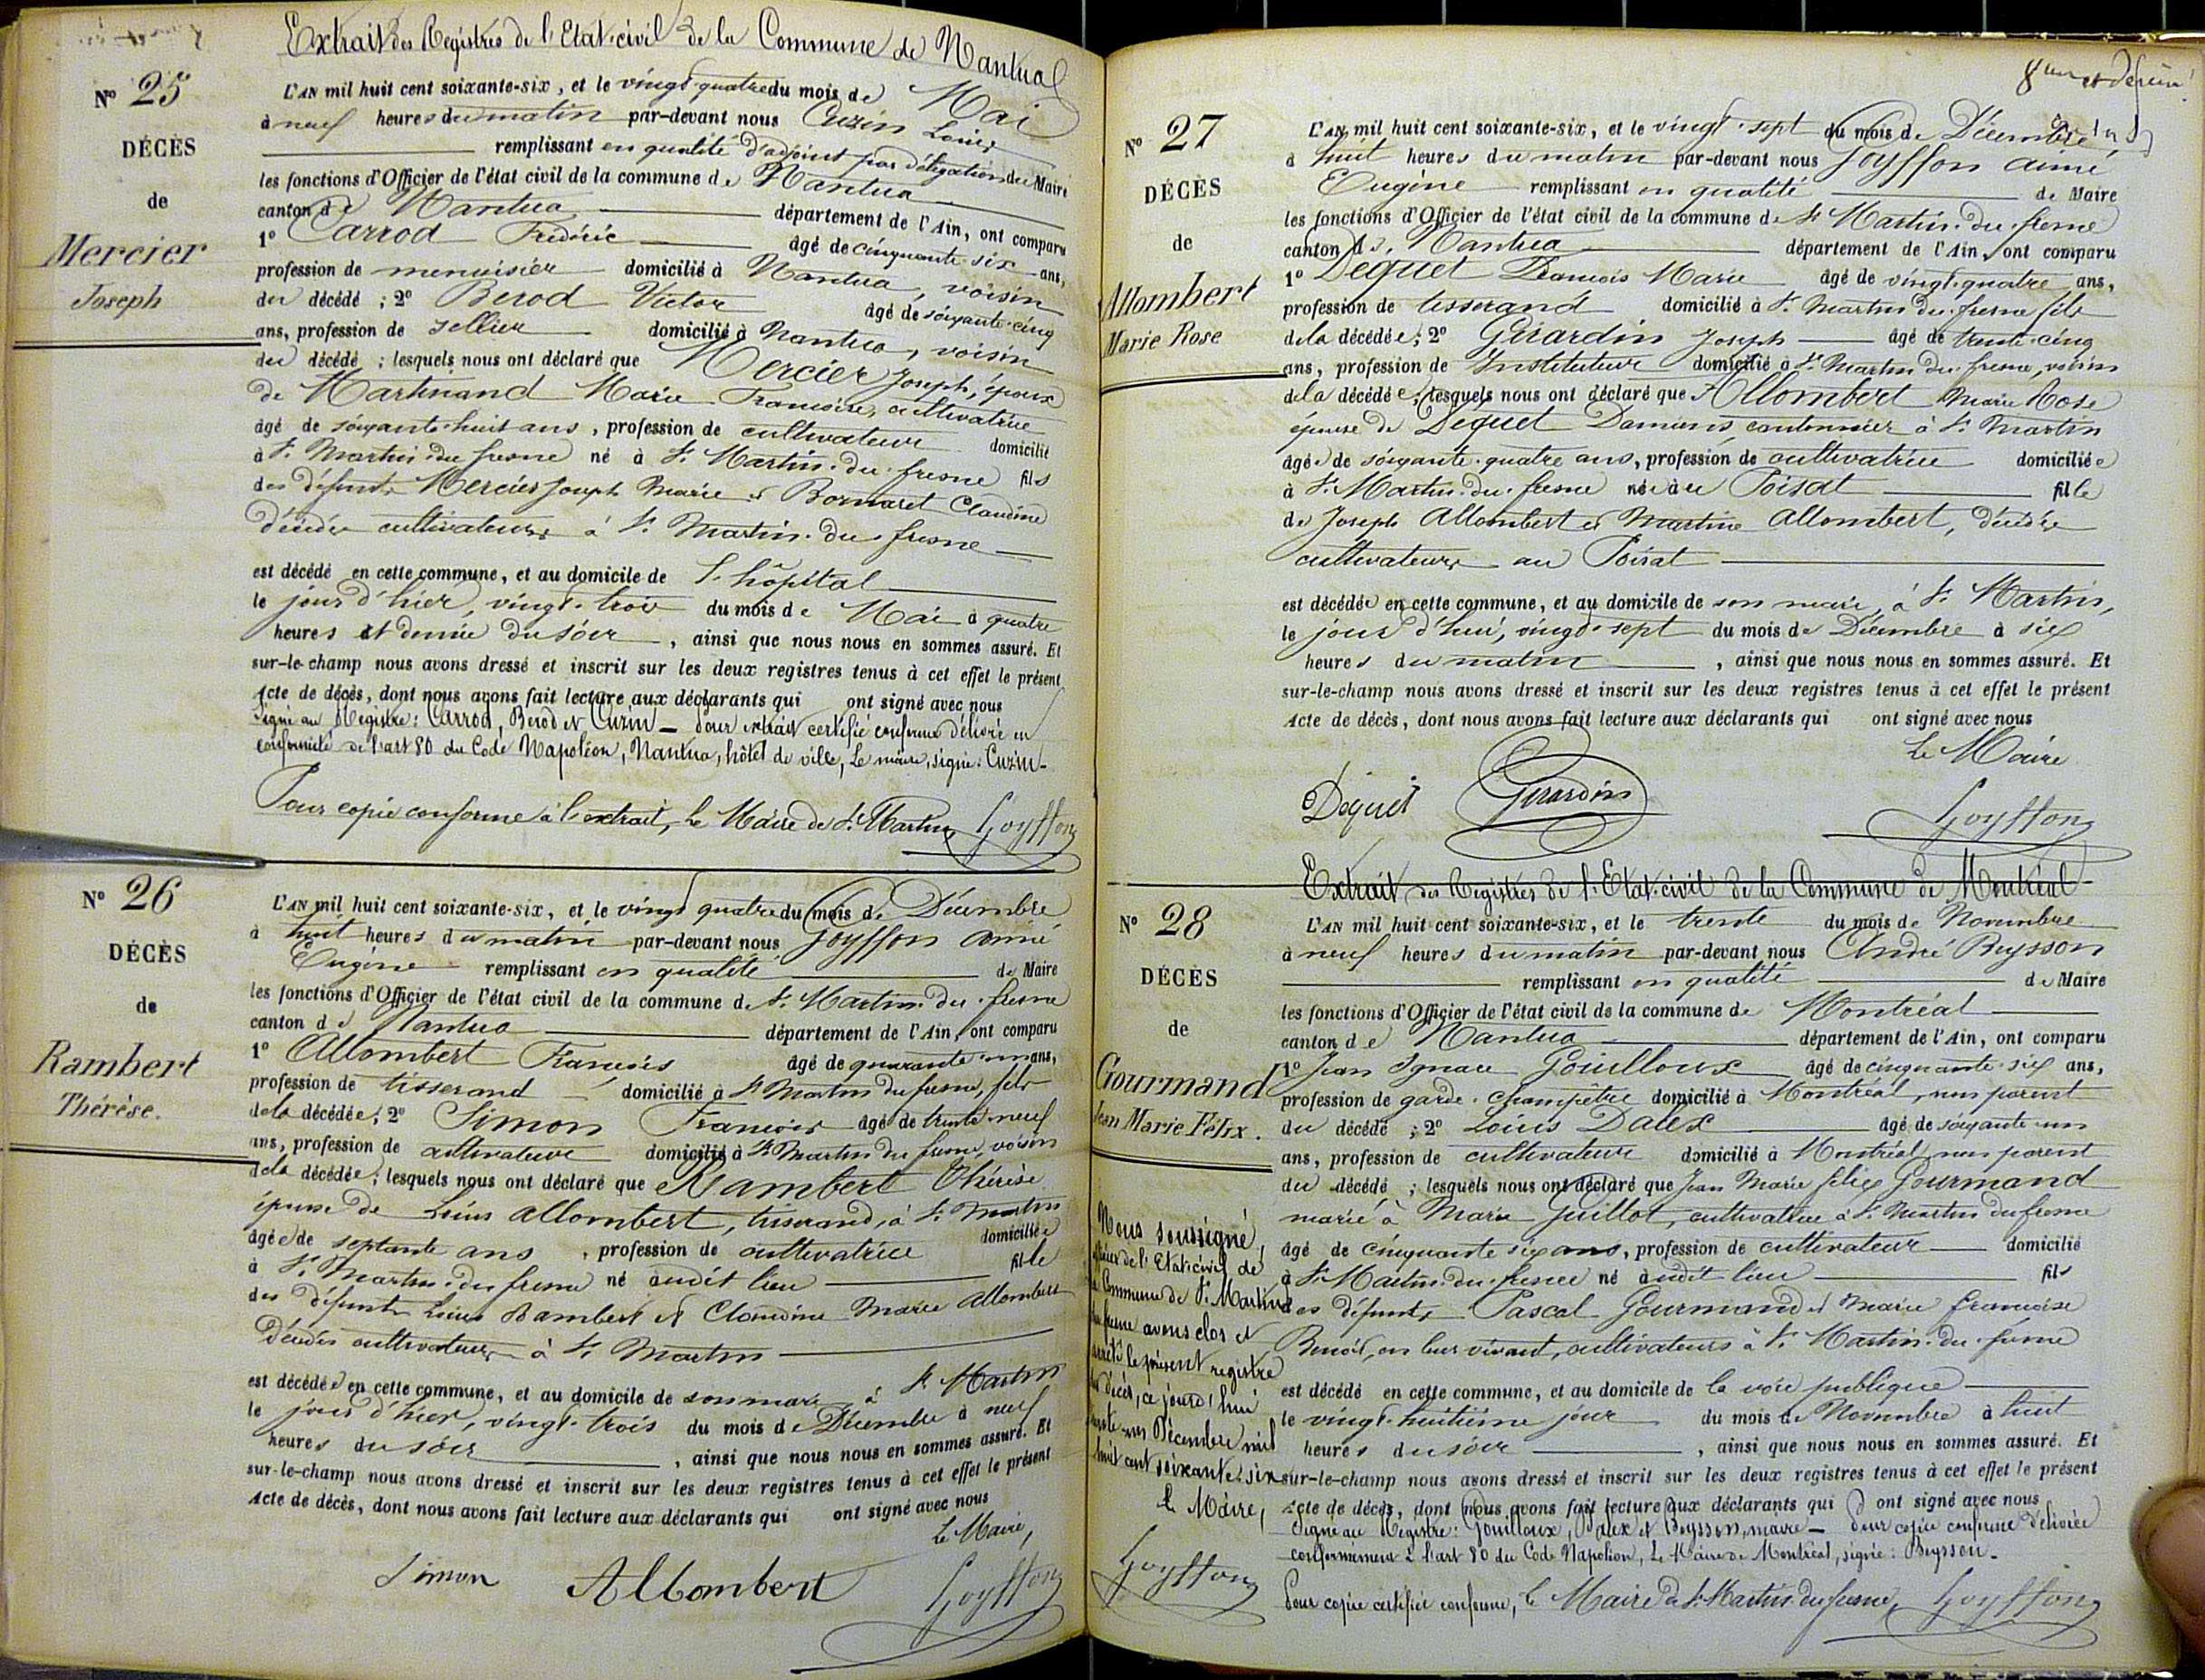 Extrait des Registres de l'Etat-civil de la Commune de Nantua
N° 25
DÉCÈS
de
Mercier
Joseph
L'AN mil huit cent soixante-six, et le vingt quatre du mois de Mai
à neuf heures du matin par-devant nous Cuzin Louis
remplissant en qualité d'adjoint par délégation du Maire
les fonctions d'Officier de l'état civil de la commune de Nantua
canton de Nantua département de l'Ain, ont comparu
1° Carrod Frédéric âgé de cinquante six ans,
profession de menuisier domicilié à Nantua, voisin
du décédé ; 2° Berod Victor âgé de soixante-cinq
ans, profession de sellier domicilié à Nantua, voisin
du décédé ; lesquels nous ont déclaré que Mercier Joseph, époux
de Martinand Marie Françoise, cultivatrice
âgé de soixante-huit ans, profession de cultivateur domicilié
à St Martin-du-fresne né à St Martin-du-fresne fils
des défunts Mercier Joseph Marie et Bornaret Claudine
décédés cultivateurs à St Martin-du-fresne
est décédé en cette commune, et au domicile de l'hôpital
le jour d'hier, vingt-trois du mois de Mai à quatre
heures et demie du soir, ainsi que nous nous en sommes assuré. Et
sur-le-champ nous avons dressé et inscrit sur les deux registres tenus à cet effet le présent
Acte de décès, dont nous avons fait lecture aux déclarants qui ont signé avec nous
Signé au Registre : Carrod, Berod et Cuzin — Pour extrait certifié conforme délivré en
conformité de l'art 80 du Code Napoléon, Nantua, hôtel de ville, Le maire, signé : Cuzin -
Pour copie conforme à l'extrait, Le Maire de St Martin, Goyffon
N° 26
DÉCÈS
de
Rambert
Thérèse.
L'AN mil huit cent soixante-six, et le vingt quatre du mois de Décembre
à huit heures du matin par-devant nous Goyffon Aimé
Eugène remplissant en qualité de Maire
les fonctions d'Officier de l'état civil de la commune de St Martin-du-fresne
canton de Nantua département de l'Ain, ont comparu
1° Allombert François âgé de quarante un ans,
profession de tisserand domicilié à St Martin du fresne, fils
de la décédée ; 2° Simon François âgé de trente-neuf
ans, profession de cultivateur domicilié à St Martin du fresne, voisin
de la décédée ; lesquels nous ont déclaré que Rambert Thérèse
épouse de Louis Allombert, tisserand, à St Martin
âgée de septante ans, profession de cultivatrice domiciliée
à St Martin-du-fresne né audit lieu fille
des défunts Louis Rambert et Claudine Marie Allombert
décédés cultivateurs à St Martin
est décédée en cette commune, et au domicile de son mari, à St Martin
le jour d'hier, vingt-trois du mois de Décembre à neuf
heures du soir, ainsi que nous nous en sommes assuré. Et
sur-le-champ nous avons dressé et inscrit sur les deux registres tenus à cet effet le présent
Acte de décès, dont nous avons fait lecture aux déclarants qui ont signé avec nous
Le Maire,
Simon Allombert Goyffon
N° 27
DÉCÈS
de
Allombert
Marie Rose
L'AN mil huit cent soixante-six, et le vingt-sept du mois de Décembre
à huit heures du matin par-devant nous Goyffon Aimé
Eugène remplissant en qualité de Maire
les fonctions d'Officier de l'état civil de la commune de St Martin-du-fresne
canton de Nantua département de l'Ain, ont comparu
1° Dequet François Marie âgé de vingt-quatre ans,
profession de tisserand domicilié à St Martin du fresne fils
de la décédée ; 2° Girardin Joseph âgé de trente-cinq
ans, profession de Instituteur domicilié à St Martin du fresne, voisin
de la décédée ; lesquels nous ont déclaré que Allombert Marie Rose
épouse de Dequet cantonnier à St Martin
âgée de soixante-quatre ans, profession de cultivatrice domiciliée
à St Martin-du-fresne née au Poisat fille
de Joseph Allombert et Martine Allombert, décédés
cultivateurs au Poisat
est décédée en cette commune, et au domicile de son mari, à St Martin,
le jour d'hui, vingt-sept du mois de Décembre à six
heures du matin, ainsi que nous nous en sommes assuré. Et
sur-le-champ nous avons dressé et inscrit sur les deux registres tenus à cet effet le présent
Acte de décès, dont nous avons fait lecture aux déclarants qui ont signé avec nous
Le Maire
Dequet Girardin Goyffon
Extrait des Registres de l'Etat-civil de la Commune de Montréal -
N° 28
DÉCÈS
de
Gourmand
Jean Marie Félix.
L'AN mil huit cent soixante-six, et le trente du mois de Novembre
à neuf heures du matin par-devant nous André Beysson
remplissant en qualité de Maire
les fonctions d'Officier de l'état civil de la commune de Montréal
canton de Nantua département de l'Ain, ont comparu
1° Jean Ignace Gouilloux âgé de cinquante-six ans,
profession de garde-champêtre domicilié à Montréal, non parent
du décédé ; 2° Louis Dalex âgé de soixante-un
ans, profession de cultivateur domicilié à Montréal non parent
du décédé ; lesquels nous ont déclaré que Jean Marie félix Gourmand
marié à Marie Guillot, cultivatrice à St Martin du fresne
âgé de cinquante six ans, profession de cultivateur domicilié
à St Martin-du-fresne né audit lieu fils
des défunts Pascal Gourmand et Marie françoise
Benoit, en leur vivant, cultivateurs à St Martin-du-fresne
est décédé en cette commune, et au domicile de la voie publique
le vingt-huitième jour du mois de Novembre à huit
heures du soir, ainsi que nous nous en sommes assuré. Et
sur-le-champ nous avons dressé et inscrit sur les deux registres tenus à cet effet le présent
Acte de décès, dont nous avons fait lecture aux déclarants qui ont signé avec nous
Signé au Registre : Gouilloux, Dalex et Beysson, maire — Pour copie conforme délivrée
conformément à l'art 80 du Code Napoléon, Le Maire de Montréal, signé : Beysson.
Pour copie certifiée conforme, le Maire de St Martin du fresne, Goyffon
Nous soussigné,
officier de l'Etat-civil de
la Commune de St Martin
du fresne avons clos et
arrêté le présent registre
des décès, ce jourd'hui
trente-un Décembre mil
huit cent soixante-six
Le Maire,
Goyffon